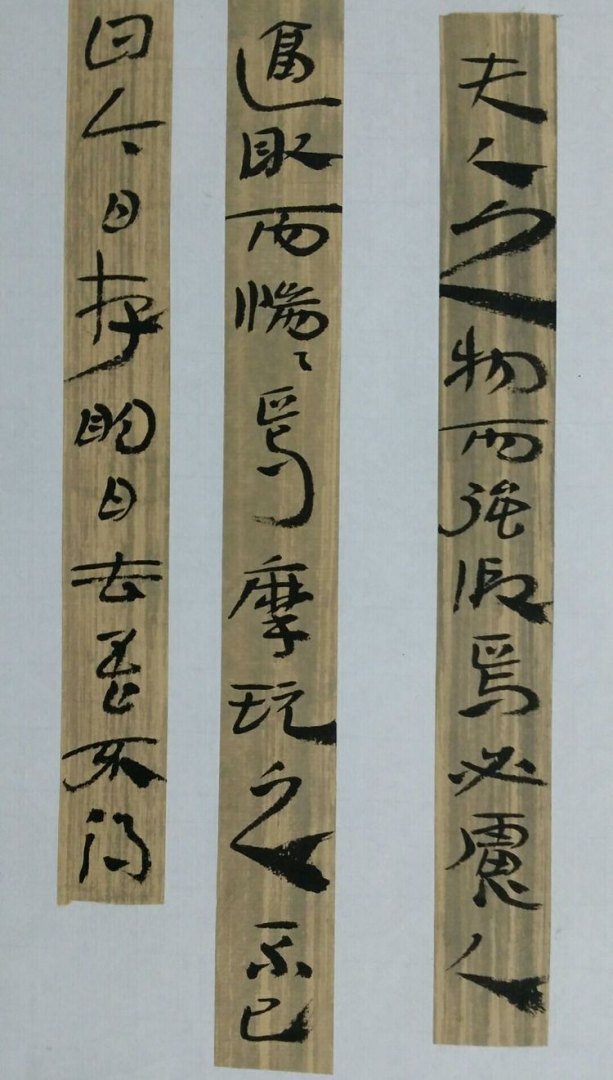 夫人之物而强假焉必慮人
逼取而惴〻焉摩玩之不已
曰今日存明日去吾不得